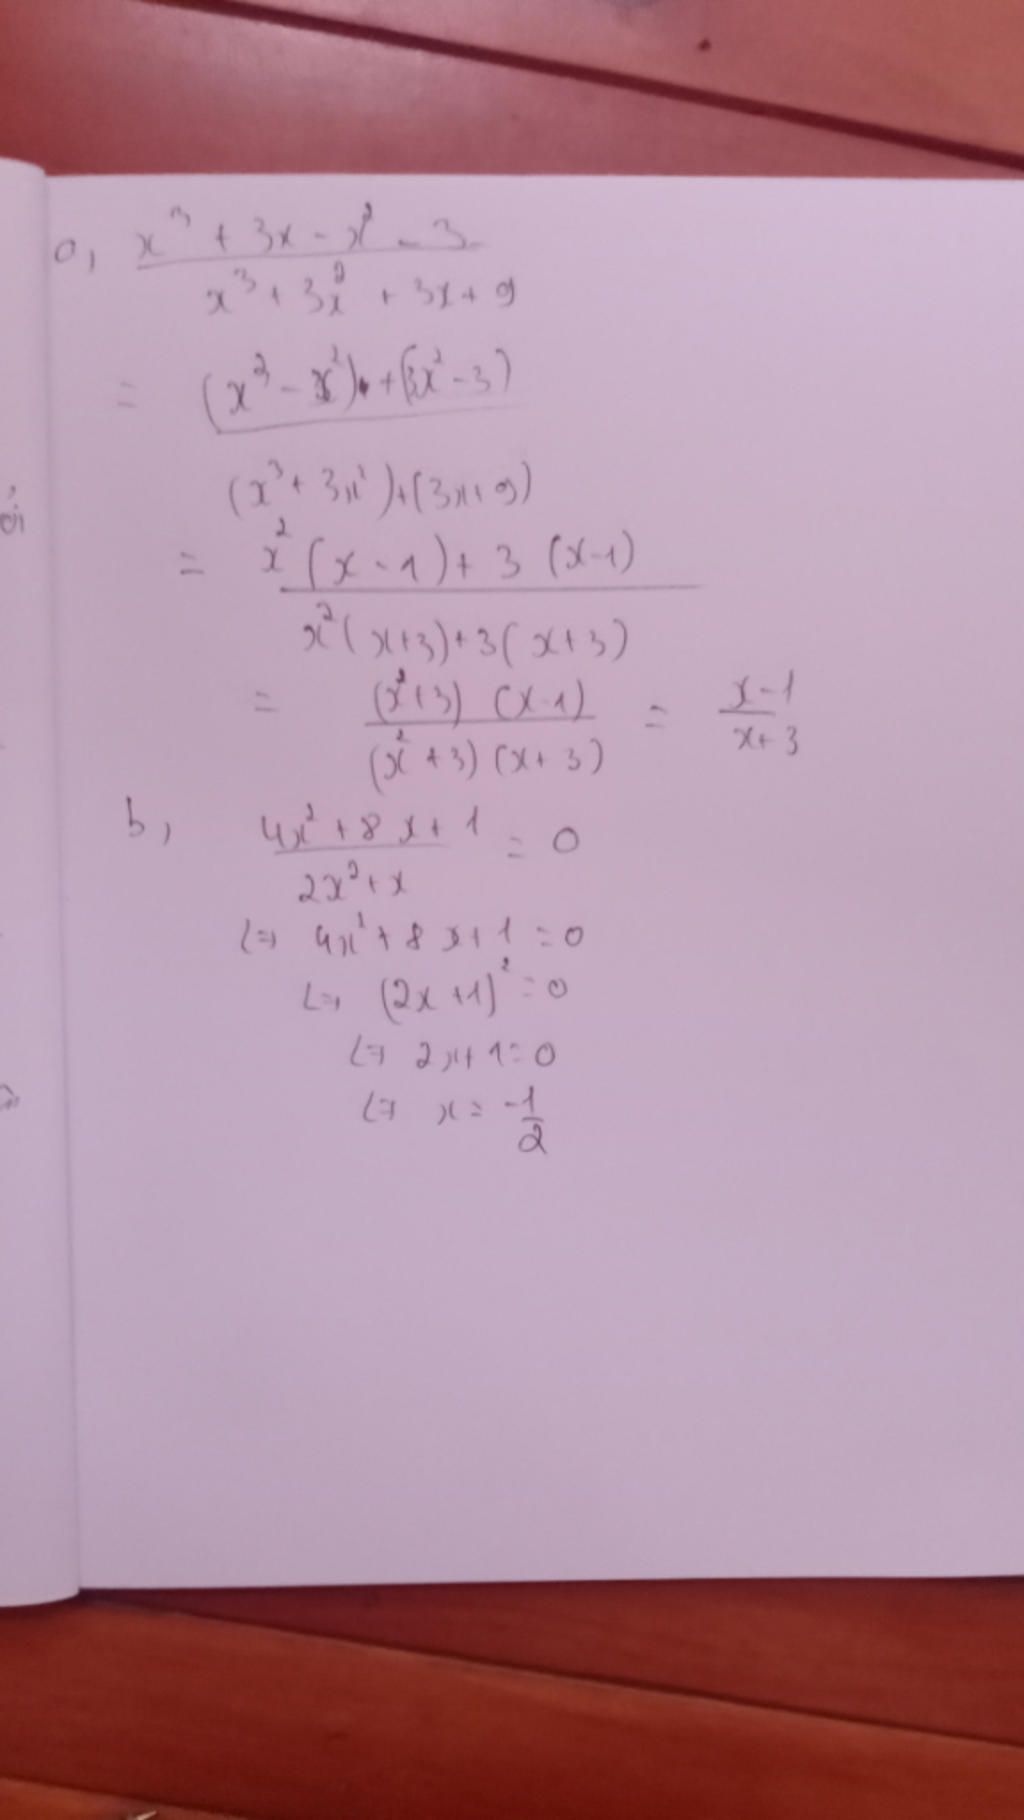 a, x³ + 3x - x² - 3
x³ + 3x² + 3x + 9
= (x³ - x²) + (3x² - 3)
(x³ + 3x²) + (3x + 9)
= x² (x - 1) + 3 (x - 1)
x² (x + 3) + 3 (x + 3)
= (x² + 3) (x - 1) = x - 1
(x² + 3) (x + 3) x + 3
b, 4x² + 8x + 1 = 0
2x² + x
<=> 4x² + 8x + 1 = 0
<=> (2x + 1)² = 0
<=> 2x + 1 = 0
<=> x = -1
2